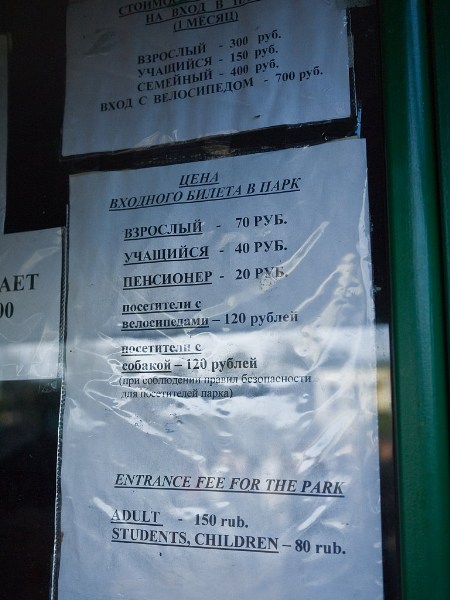 НА ВХОД В
(1 МЕСЯЦ)
ВЗРОСЛЫЙ - 300 руб.
УЧАЩИЙСЯ - 150 руб.
СЕМЕЙНЫЙ - 400 руб.
ВХОД С ВЕЛОСИПЕДОМ - 700 руб.
ЦЕНА
ВХОДНОГО БИЛЕТА В ПАРК
ВЗРОСЛЫЙ - 70 РУБ.
УЧАЩИЙСЯ - 40 РУБ.
ПЕНСИОНЕР - 20 РУБ.
посетители с
велосипедами – 120 рублей
посетители с
собакой – 120 рублей
(при соблюдении правил безопасности
для посетителей парка)
АЕТ
00
ENTRANCE FEE FOR THE PARK
ADULT - 150 rub.
STUDENTS, CHILDREN – 80 rub.